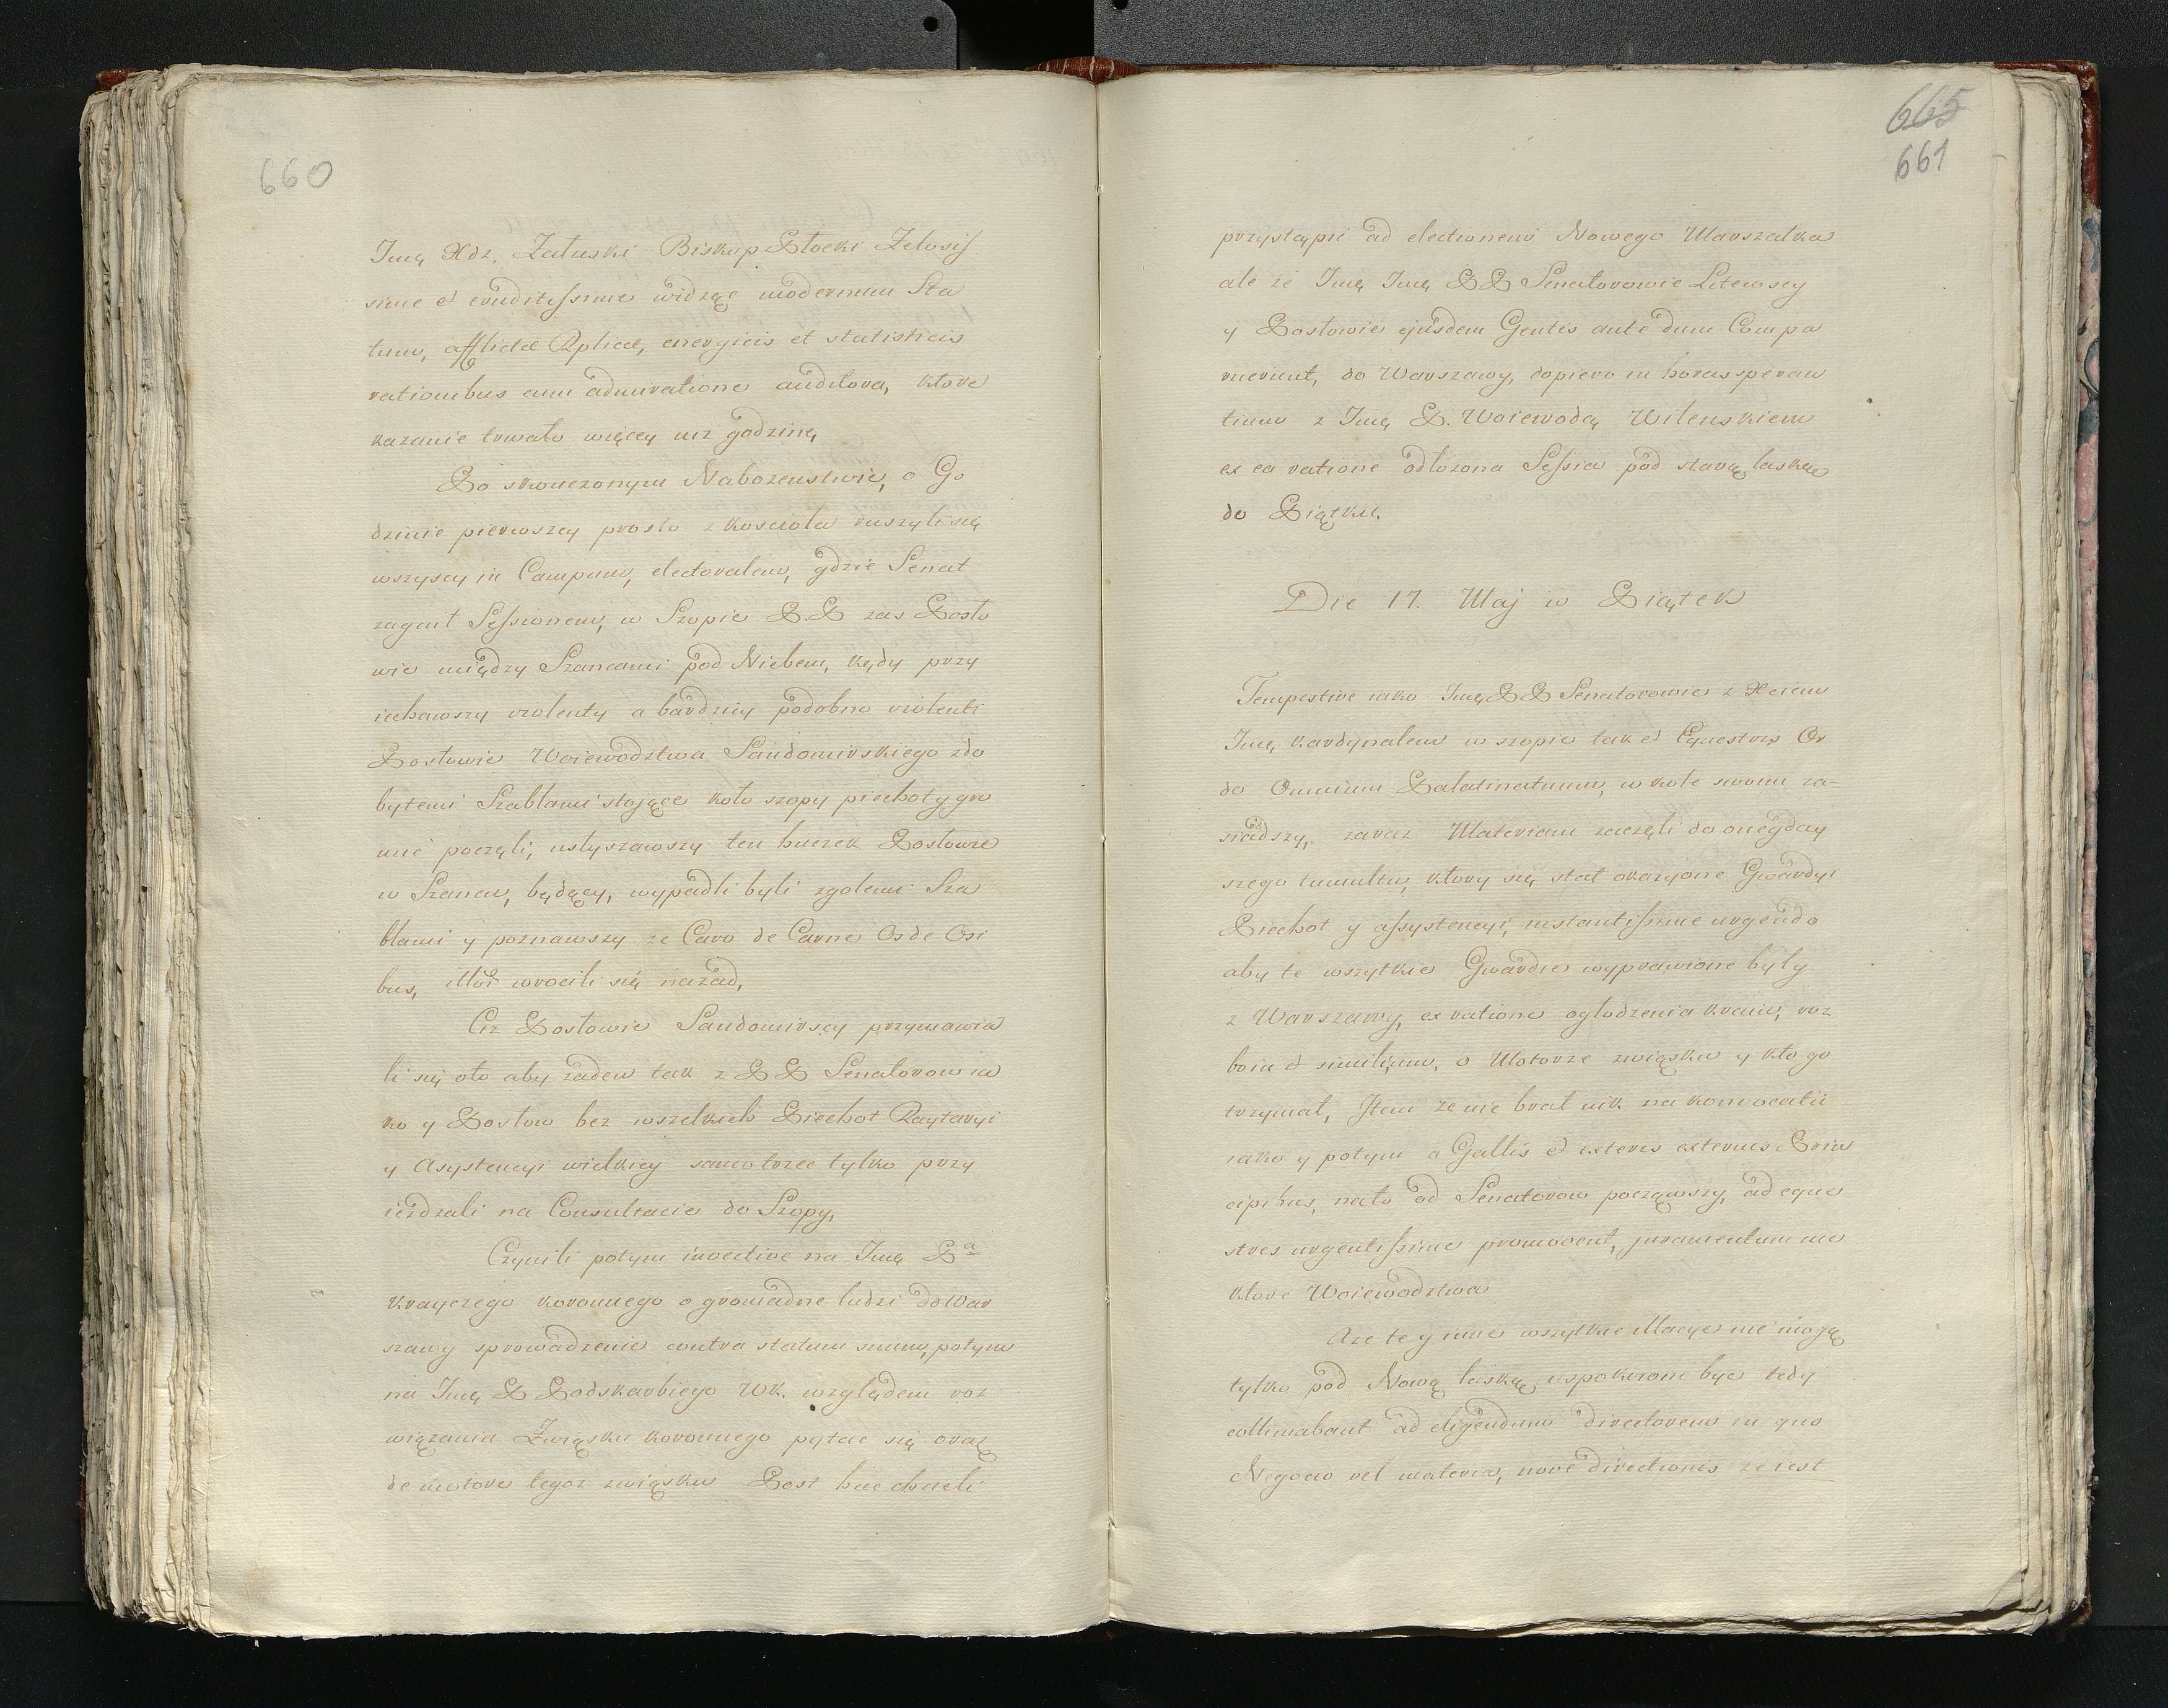 660
Jmę Xdz. Załuski Biskup Płocki Zelosis
sime et eruditissime widząc modernum Sta
tum, afflictæ Rplicæ, energicis et statisticis
rationibus cum admiratione auditora, ktore
kazanie trwało więcey niż godzinę
Po skonczonym Nabozenstwie, o Go
dzinie pierwszey prosto z Kosciola ruszyli się
wszyscy in Campum, electoralem, gdzie Senat
zagait Sessionem, w Szopie PP zas Posło
wie między Szancami pod Niebem, kędy przy
iechawszy violenty a bardziey podobno violenti
Posłowie Woiewodztwa Sandomirskiego zdo
bytemi Szablami stojące koło szopy piechoty gro
mić poczęli, usłyszawszy ten huczek Posłowie
w Szancu, będący, wypadli byli zgołemi Sza
blami y poznawszy ze Caro de Carne Os de Osi
bus, wrocili się nazad,
Ciż Posłowie Sandomirscy przymawia
li się oto aby zaden tak z PP Senatorow ia
ko y Posłow bez wszelkich Piechot Raytaryi
y Asystencyi wielkiey samotrzec tylko przy
iezdzali na Consultacie do Szopy,
Czynili potym invective na Jmę Pa
Krayczego koronnego o gromadne ludzi do War
szawy sprowadzenie contra statum suum, potym
na Jmę P Podskarbiego WK. względem roz
wiązania Związku koronnego pytac się oraz
de motore tegoz związku Post hæc chcieli
665
661
przystąpić ad electionem Nowego Marszałka
ale że Jmę Jmę PP Senatorowie Litewscy
y Posłowie ejusdem Gentis ante dum Compa
ruerunt, do Warszawy, dopiero in horas speran
tium z Jmę P. Woiewodą Wilenskiem
ex ea ratione odłozona Sessia pod starą laską
do Piątku,
Die 17. Maj w Piątek
Tempestive iako Jmę PP Senatorowie z Xciem
Jmę kardynałem w szopie tak et Equestris Or
do Omnium Palatinatuum, w kole swoim za-
siadszy, zaraz Materiam zaczęli do onegday
szego tumultu, ktory się stał okazyone Gwardyi
Piechot y assystencyi, instantissime urgendo
aby te wszytkie Gwardie wyprawione były
z Warszawy, ex ratione ogłodzenia kraiu, roz
boiu et similium, o Motorze związku y kto go
trzymał, Item ze nie brał nik na konvocatii
iako y potym a Gallis et exteris externis Prin
cipibus, na to od Senatorow począwszy, ad eque
stres urgentissime promovent, juramentum nie
ktore Woiewodztwa
Aze te y inne wszytkie Macye nie mogą
tylko pod Nową laską uspokoione byc tedy
collimabant ad eligendum directorem in quo
Negocio vel materia, nove directionis ze iest